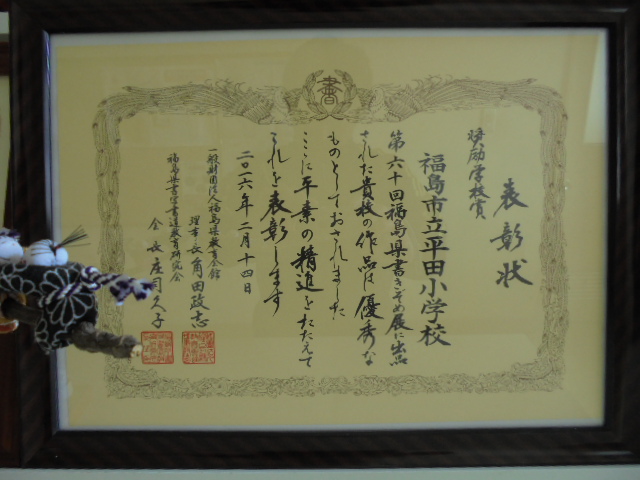 書
表彰状
奨励学校賞
福島市立平田小学校
第六十回福島県書きぞめ展に出品
された貴校の作品は優秀な
ものとしておされました
ここに平素の精進をたたえて
これを表彰します
二〇一六年二月十四日
一般財団法人福島県教育会館
理事長角田政志
福島県書写書道教育研究会
会長庄司久子